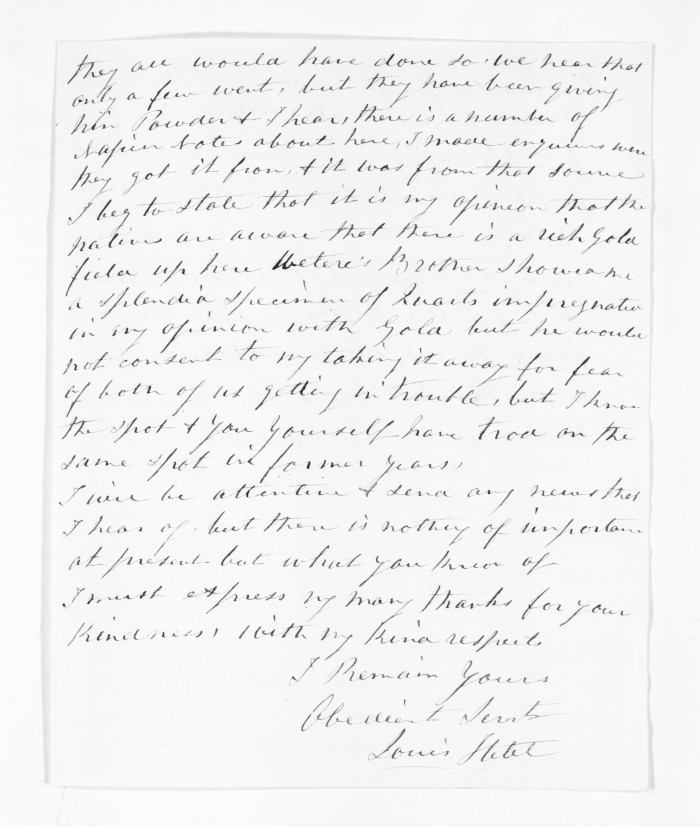 they all would have done so, we hear that
only a few went, but they have been giving
him Powder & I hear, there is a number of
Napier Notes about here, I made enquiers were
they got it from, & it was from that source
I beg to state that it is my opineon that the
natives are aware that there is a rich Gold
field up here Brother showed me
a splendid specimen of Quarts impregnated
in my opinion with Gold but he would
not consent to my taking it away for fear
of both of us getting in trouble, but I know
the spot & You Yourself have trod on the
same spot in former Years,
I will be attentive & send any news that
I hear of. but there is nothing of importance
at present but what you know of
I must express my many thanks for your
Kindness, with my Kind respects
I Remain Yours
Obedient Servt
Louis Hetet